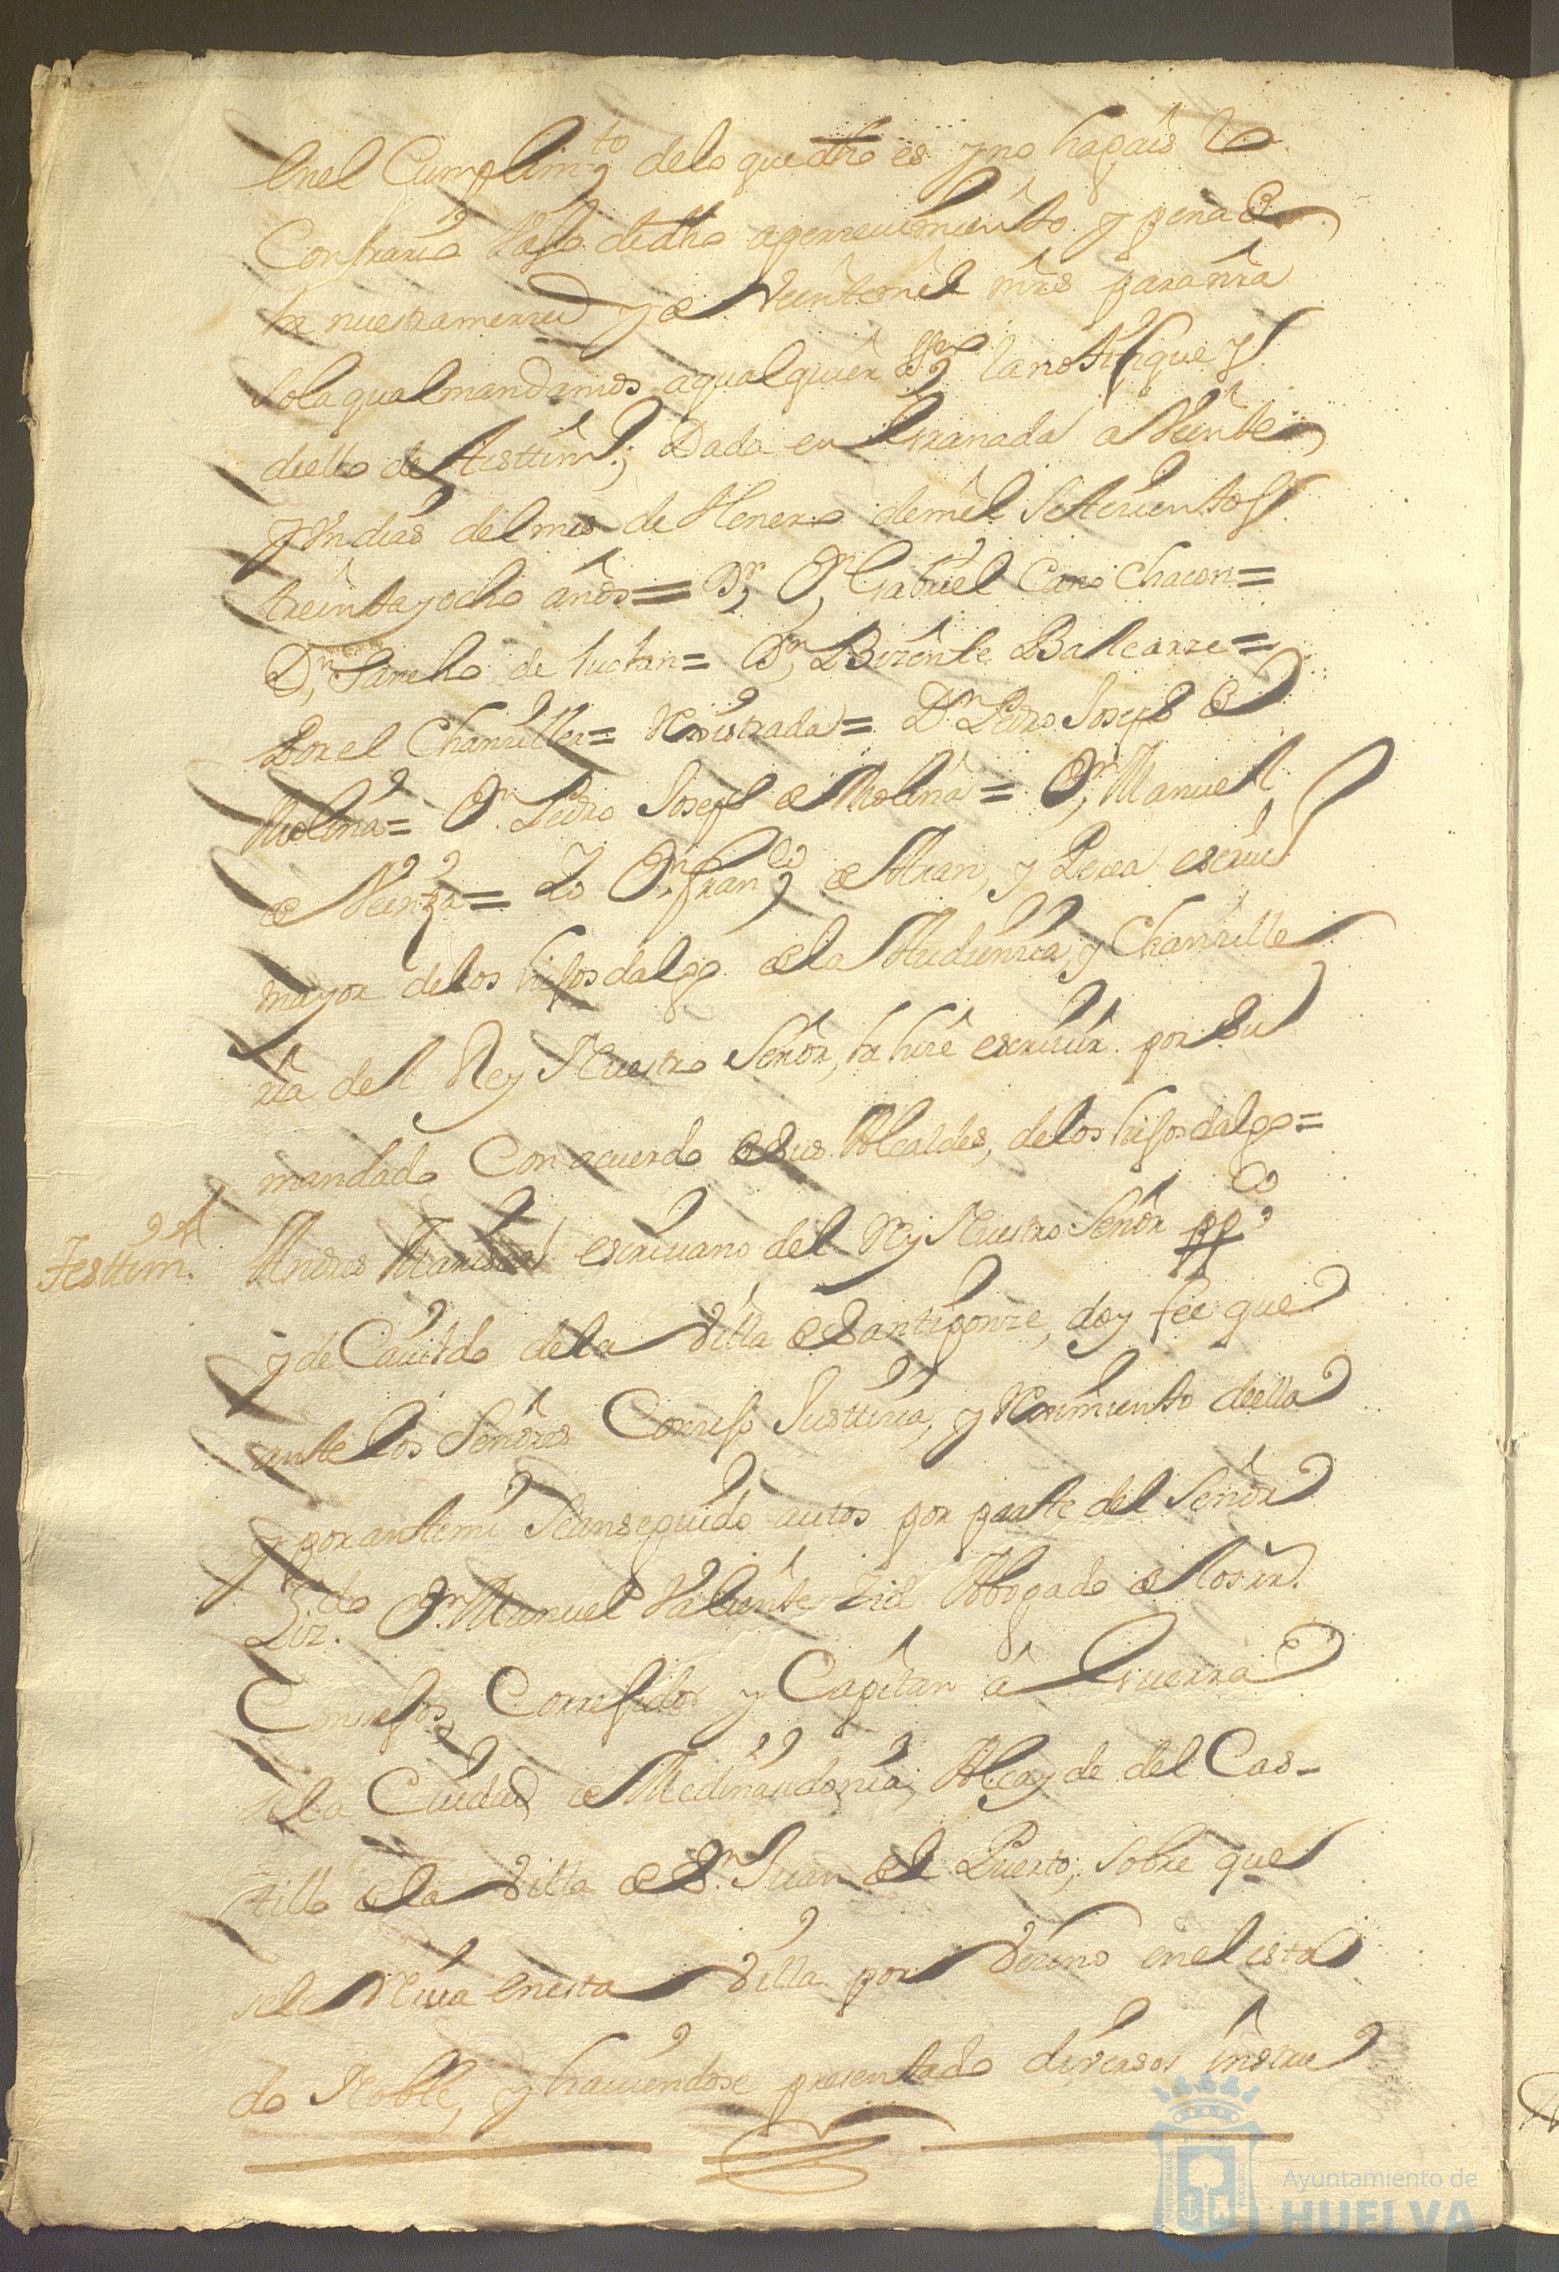 enel Cumplim.to delo que dho es y no hagais lo
Contrario bajo de dho apercevimiento y pena de
la nuestra merced y de Veinte mil mrs para nra
so la qual mandamos a qualquier ss.no la notifique y
de ello de testtim.o; Dada en Granada a Veinte
y un dias del mes de Henero de mil Setecientos
treinta y ocho años = D.r D.n Gabriel Cano Chacon =
D.n Sancho de = D.n Bizente Balcarze =
Por el Chanziller = Rexistrada = D.n Pedro Joseph de
Molina = D.n Pedro Joseph de Molina = D.n Manuel
de = Yo D.n Fran.co de y Perea escriu.o
mayor delos hijosdalgo dela Audiencia, y Chanzille
ria del Rey Nuestro Señor, la hize escriuir por su
mandado Con acuerdo de sus Alcaldes, delos hijosdalgo =
Testtim.o
Andres Mariscal escriuano del Rey Nuestro Señor pp.co
y de Cauildo dela Villa de Santiponze, doy fee que
ante los Señores Conzejo Justtizia, y Reximiento de ella
y por ante mi se an seguido autos por parte del Señor
Liz.do D.n Manuel Valiente Abogado de los rr.
Consejos, Correjidor y Capitan á Guerra
de la Ciudad de Medinasidonia, Alcayde del Cas-
tillo de la Villa de S.n Juan del Puerto, sobre que
se le Reciua en esta Villa por Vezino en el esta
do Noble, y hauiendose presentado diversos instru
Ayuntamiento de
HUELVA